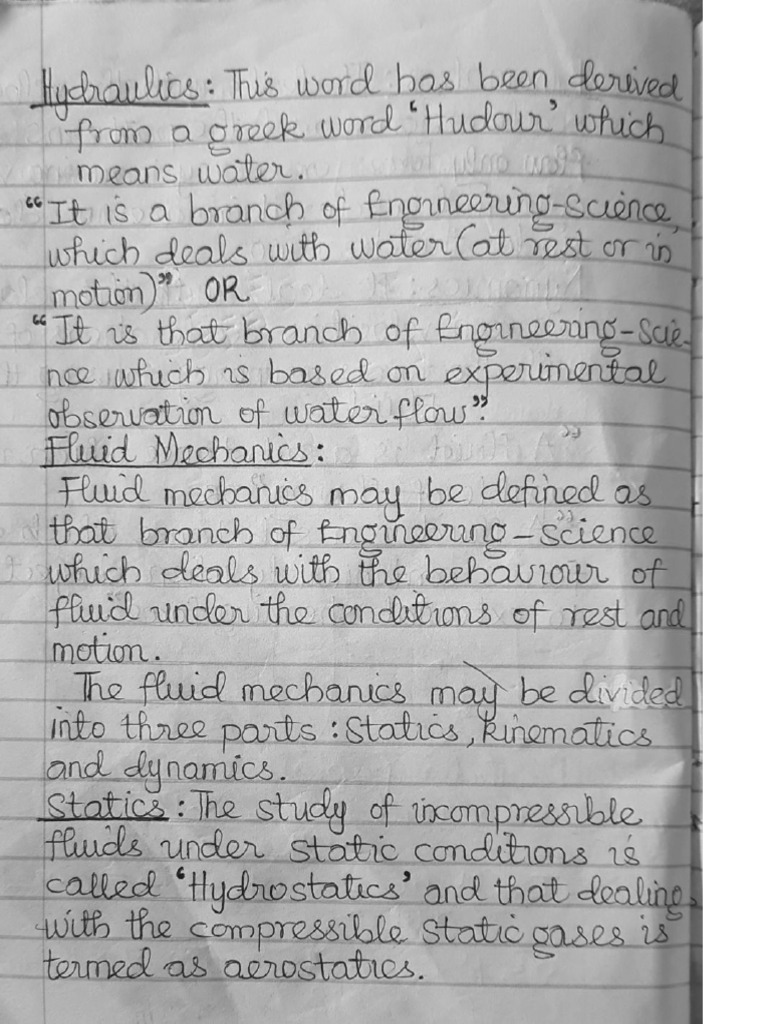 Hydraulics: This word has been derived
from a greek word ‘Hudour’ which
means water.
“It is a branch of Engineering-Science,
which deals with water (at rest or in
motion)” OR
“It is that branch of Engineering-Scie-
nce which is based on experimental
observation of water flow”.
Fluid Mechanics:
Fluid mechanics may be defined as
that branch of Engineering-science
which deals with the behaviour of
fluid under the conditions of rest and
motion.
The fluid mechanics may be divided
into three parts: Statics, kinematics
and dynamics.
Statics: The study of incompressible
fluids under static conditions is
called ‘Hydrostatics’ and that dealing
with the compressible static gases is
termed as aerostatics.